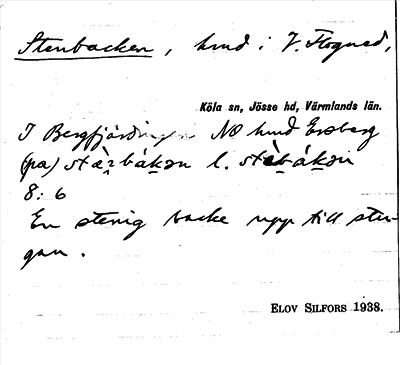 Stenbacken, hmd i V. Flogned,
Köla sn, Jösse hd, Värmlands län.
I Bergfjärdingen NO hmd Enberg
(pa) l.
8: 6
En stenig backe upp till stu-
gan.
ELOV SILFORS 1938.